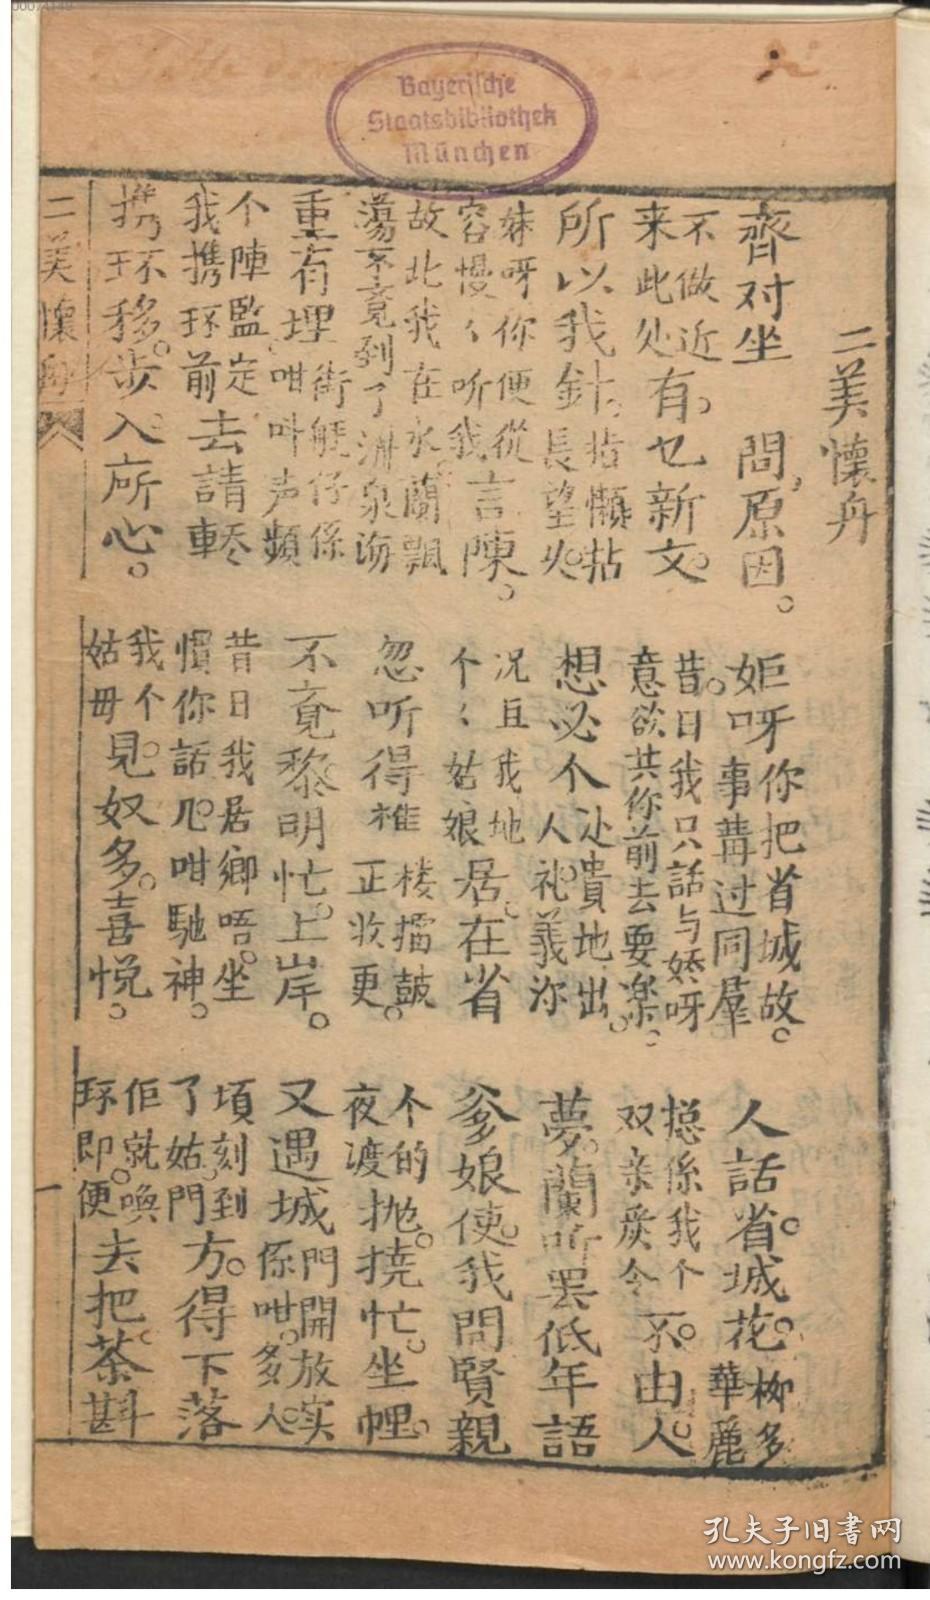 二美懷舟
齊对坐 問原因。
姖呀你把省城故。事講过同羣
人話省城花柳多華麗
不做近来此处有乜新文。
昔日我只話与嬌呀意欲共你前去耍樂。
揔係我个双亲 令不由人。
所以我針黹懶拈長望
想必个处貴地出人礼義深
夢蘭听罢低年語
妹呀你便從容慢〻听我言陳。
况且我地个〻姑娘居在省
爹娘使我問賢親
故此我在水蘭飄蕩不竟到了洲泉海
忽听得樵楼擂鼓正收更。
个的夜渡抛撓忙坐
重有埋街艇仔係咁叫声頻
不竟黎明忙上岸。
又遇城門開放实係咁多人
个陣監定我携环前去請
昔日我居鄉唔坐慣你話咁馳神。
頃刻到了姑門方得下落
携环移步入所心。
我个姑毋見奴多喜悦。
佢就喚环即便去把茶斟
二美懷舟
一
Bayerische
Staatsbibliothek
München
孔夫子旧書网
www.kongfz.com